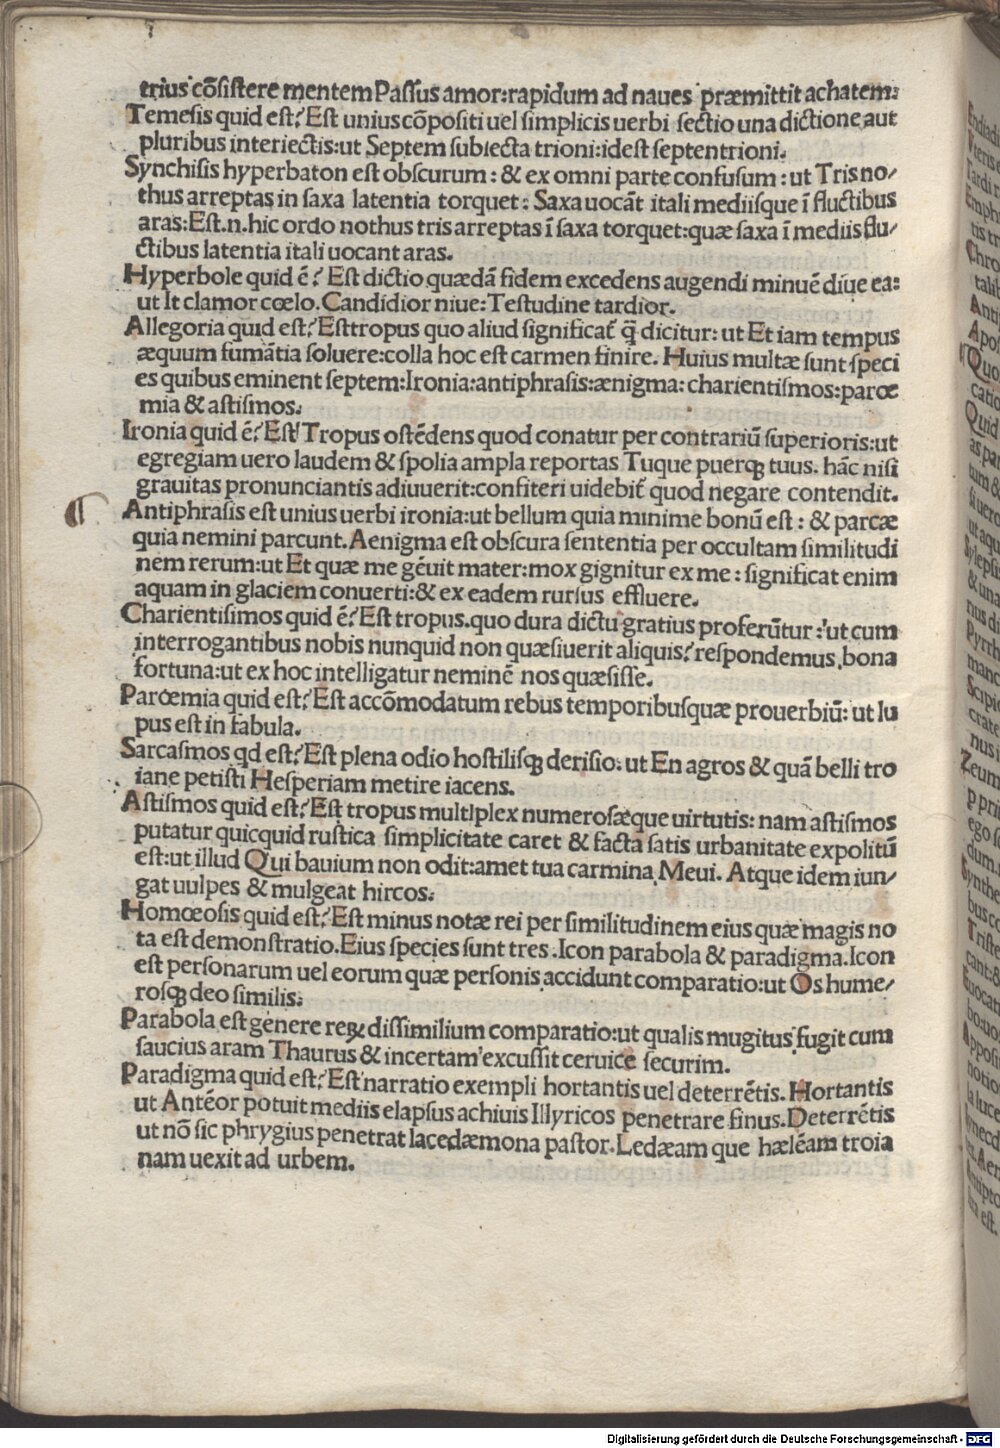 trius cōſiſtere mentem Paſſus amor:rapidum ad naues præmittit achatem:
Temeſis quid eſt? Eſt unius cōpoſiti uel ſimplicis uerbi ſectio una dictione aut
pluribus interiectis:ut Septem ſubiecta trioni:ideſt ſeptentrioni.
Synchiſis hyperbaton eſt obſcurum: & ex omni parte confuſum: ut Tris no/
thus arreptas in ſaxa latentia torquet: Saxa uocāt itali mediiſque ī fluctibus
aras:Eſt.n.hic ordo nothus tris arreptas ī ſaxa torquet:quæ ſaxa ī mediis flu/
ctibus latentia itali uocant aras.
Hyperbole quid ē? Eſt dictio quædā fidem excedens augendi minuē diue ea:
ut It clamor cœlo. Candidior niue: Teſtudine tardior.
Allegoria quid eſt? Eſttropus quo aliud ſignificat̄ q̄ dicitur: ut Et iam tempus
æquum fumātia ſoluere:colla hoc eſt carmen finire. Huius multæ ſunt ſpeci
es quibus eminent ſeptem:Ironia:antiphraſis:ænigma: charientiſmos:parœ
mia & aſtiſmos.
Ironia quid ē? Eſt Tropus oſtēdens quod conatur per contrariū ſuperioris:ut
egregiam uero laudem & ſpolia ampla reportas Tuque puerqꝫ tuus. hāc niſi
grauitas pronunciantis adiuuerit:confiteri uidebit̄ quod negare contendit.
Antiphraſis eſt unius uerbi ironia:ut bellum quia minime bonū eſt: & parcæ
quia nemini parcunt. Aenigma eſt obſcura ſententia per occultam ſimilitudi
nem rerum:ut Et quæ me gēuit mater:mox gignitur ex me: ſignificat enim
aquam in glaciem conuerti:& ex eadem rurſus effluere.
Charientiſimos quid ē? Eſt tropus.quo dura dictu gratius proferūtur: ut cum
interrogantibus nobis nunquid non quæſiuerit aliquis? reſpondemus bona
fortuna:ut ex hoc intelligatur neminē nos quæſiſſe.
Parœmia quid eſt? Eſt accōmodatum rebus temporibuſquæ prouerbiū: ut lu
pus eſt in fabula.
Sarcaſmos qd eſt? Eſt plena odio hoſtiliſqꝫ deriſio: ut En agros & quā belli tro
iane petiſti Heſperiam metire iacens.
Aſtiſmos quid eſt? Eſt tropus multiplex numeroſæque uirtutis: nam aſtiſmos
putatur quicquid ruſtica ſimplicitate caret & facta ſatis urbanitate expolitū
eſt:ut illud Qui bauium non odit:amet tua carmina Meui. Atque idem iun/
gat uulpes & mulgeat hircos.
Homœoſis quid eſt? Eſt minus notæ rei per ſimilitudinem eius quæ magis no
ta eſt demonſtratio. Eius ſpecies ſunt tres. Icon parabola & paradigma. Icon
eſt perſonarum uel eorum quæ perſonis accidunt comparatio:ut Os hume/
roſqꝫ deo ſimilis.
Parabola eſt genere reꝝ diſſimilium comparatio:ut qualis mugitus fugit cum
ſaucius aram Thaurus & incertam excuſſit ceruice ſecurim.
Paradigma quid eſt? Eſt narratio exempli hortantis uel deterrētis. Hortantis
ut Antēor potuit mediis elapſus achiuis Illyricos penetrare ſinus. Deterrētis
ut nō ſic phrygius penetrat lacedæmona paſtor. Ledæam que hælēam troia
nam uexit ad urbem.
Digitalisierung gefördert durch die Deutsche Forschungsgemeinschaft - DFG